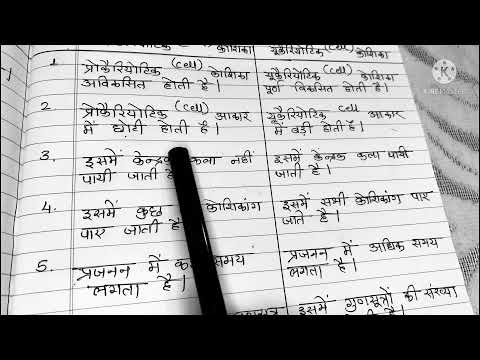 कोशिका
यूकैरियोटिक (cell) कोशिका
1 प्रोकैरियोटिक (cell) कोशिका
अविकसित होती है।
यूकैरियोटिक (cell) कोशिका
पूर्ण विकसित होती है।
2 प्रोकैरियोटिक (cell) आकार
में छोटी होती है।
यूकैरियोटिक (cell) आकार
में बड़ी होती है।
3. इसमें कला नहीं
पायी जाती है
इसमें केन्द्रक कला पायी
जाती है।
4. इसमें कुछ कोशिकांग
पाए जाते है
इसमें सभी कोशिकांग पाए
जाते है।
5. प्रजनन में समय
लगता है।
प्रजनन में अधिक समय
लगता है।
इसमें गुणसूत्रों की संख्या